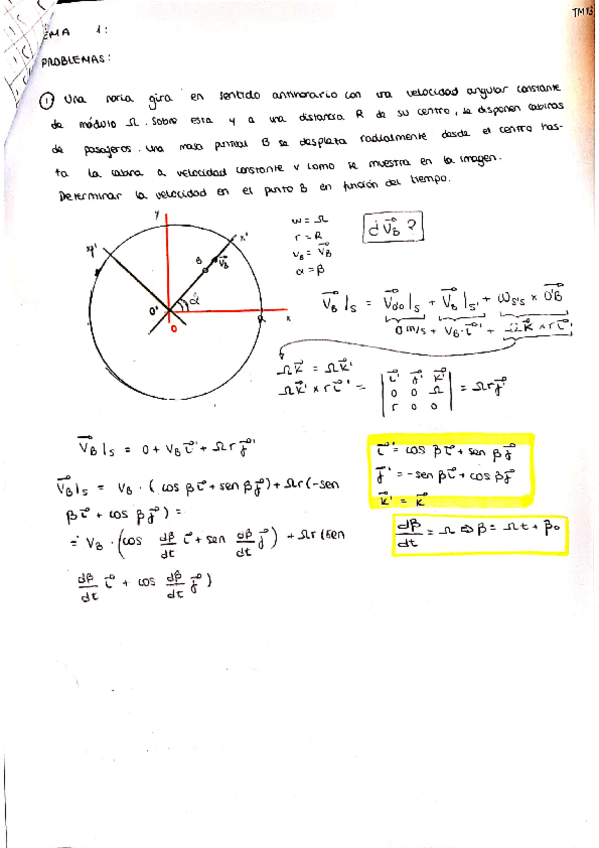 TM13
EMA 1:
PROBLEMAS:
① Una noria gira en sentido antihorario con una velocidad angular constante
de módulo Ω. Sobre esta y a una distancia R de su centro, se disponen cabinas
de pasajeros. Una masa puntual B se desplaza radialmente desde el centro has-
ta la cabina a velocidad constante v como se muestra en la imagen.
Determinar la velocidad en el punto B en función del tiempo.
y
x'
y'
B
v⃗_B
α
O'
O
R
x
ω = Ω
r = R
v_B = v⃗_B
α = β
¿ v⃗_B ?
v⃗_B |_S = v⃗_O' |_S + v⃗_B |_S' + ω_S'S × O'B
0 m/s + v_B · i⃗' + Ω k⃗ × r i⃗'
Ω k⃗ = Ω k⃗'
Ω k⃗' × r i⃗' = | i⃗' j⃗' k⃗' | = Ω r j⃗'
| 0 0 Ω |
| r 0 0 |
v⃗_B |_S = 0 + v_B i⃗' + Ω r j⃗'
v⃗_B |_S = v_B · ( cos β i⃗ + sen β j⃗ ) + Ω r (-sen
β i⃗ + cos β j⃗ ) =
= v_B · (cos dβ/dt i⃗ + sen dβ/dt j⃗ ) + Ω r (sen
dβ/dt i⃗ + cos dβ/dt j⃗ )
i⃗' = cos β i⃗ + sen β j⃗
j⃗' = -sen β i⃗ + cos β j⃗
k⃗' = k⃗
dβ/dt = Ω ⇒ β = Ω t + β₀